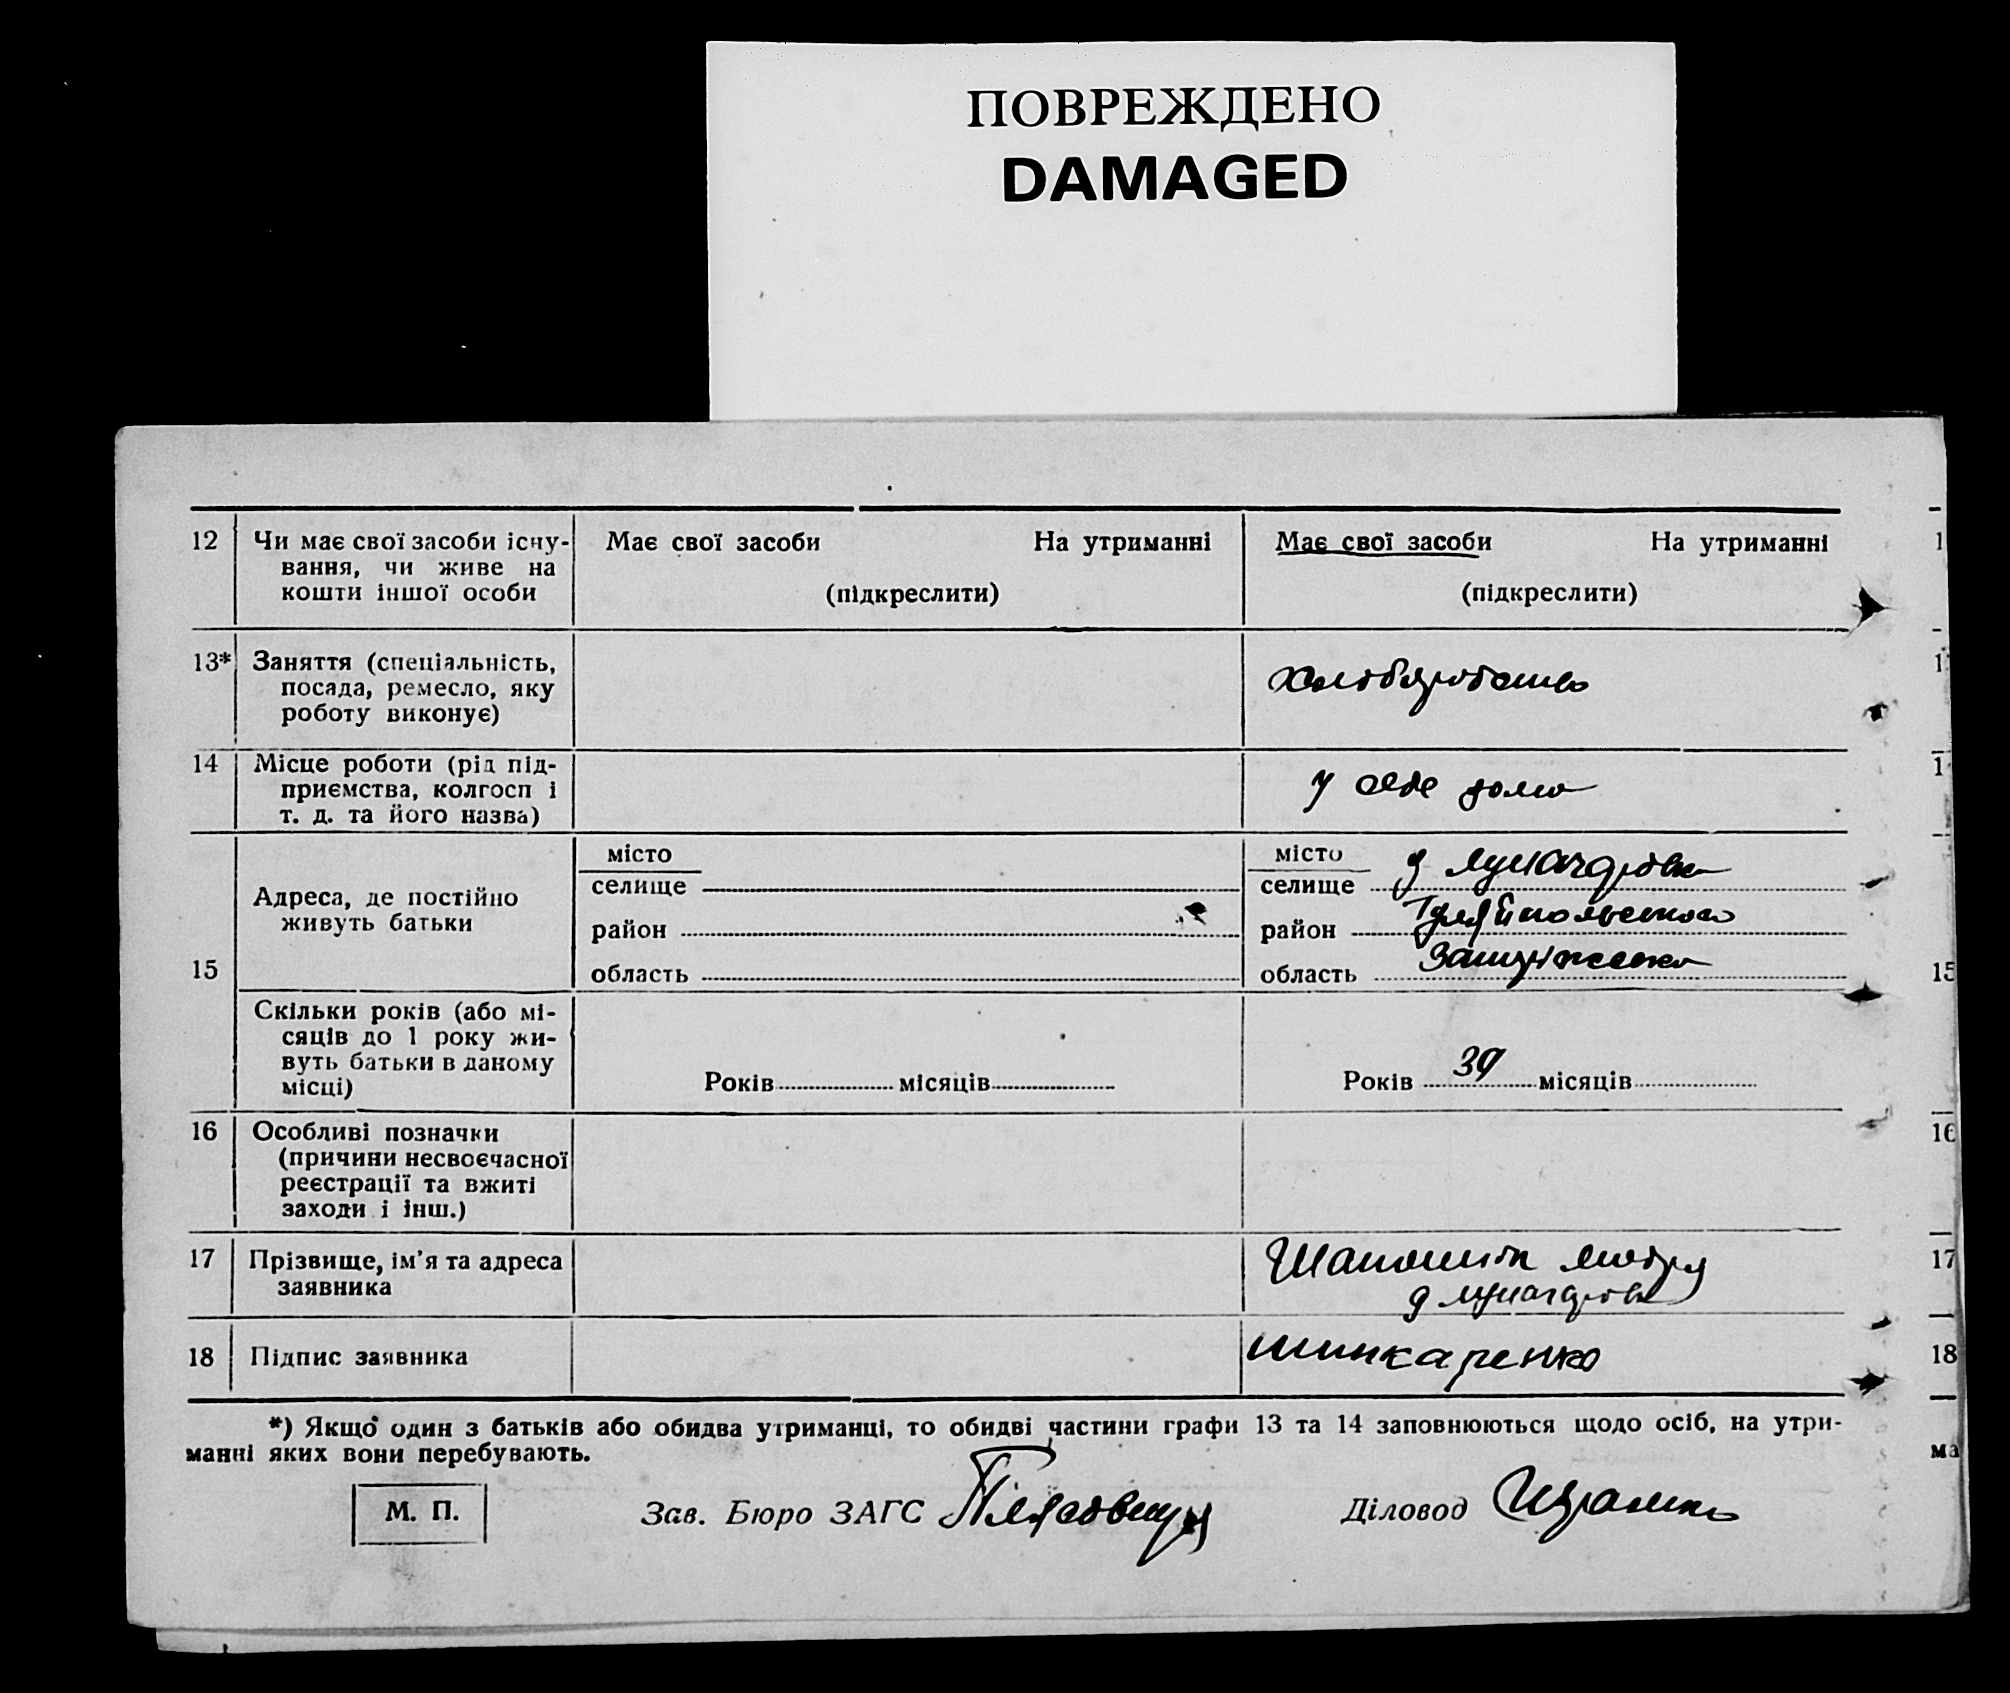 ПОВРЕЖДЕНО
DAMAGED
12 Чи має свої засоби існу- Має свої засоби На утриманні Має свої засоби На утриманні 1
вання, чи живе на
кошти іншої особи (підкреслити) (підкреслити)
13* Заняття (спеціальність, 1
посада, ремесло, яку
роботу виконує)
14 Місце роботи (рід під- 1
приємства, колгосп і у себе дома
т. д. та його назва)
15 Адреса, де постійно
живуть батьки
місто місто
селище селище
район район
область область 15
Скільки років (або мі-
сяців до 1 року жи-
вуть батьки в даному
місці) Років місяців Років 39 місяців
16 Особливі позначки 16
(причини несвоєчасної
реєстрації та вжиті
заходи і інш.)
17 Прізвище, ім’я та адреса 17
заявника
18 Підпис заявника шинкаренко 18
*) Якщо один з батьків або обидва утриманці, то обидві частини графи 13 та 14 заповнюються щодо осіб, на утри-
манні яких вони перебувають. ма
М. П. Зав. Бюро ЗАГС Діловод